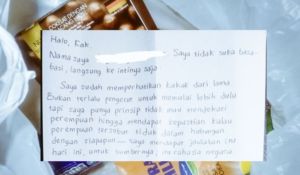 Halo, Kak.
Nama saya
Saya tidak suka basa-
basi, langsung ke intinya saja.
Saya sudah memperhatikan kakak dari lama.
Bukan terlalu pengecut untuk memulai lebih dulu
tapi saya punya prinsip tidak mau mendekati
perempuan hingga mendapat kepastian kalau
perempuan tersebut tidak dalam hubungan
dengan siapapun — saya mendapat jawaban
hari ini, untuk sumbernya, rahasia negara.